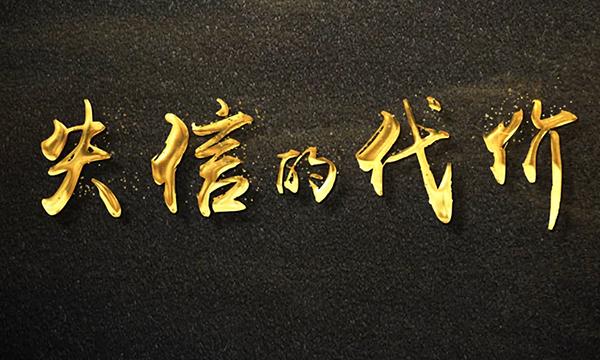 失信的代价